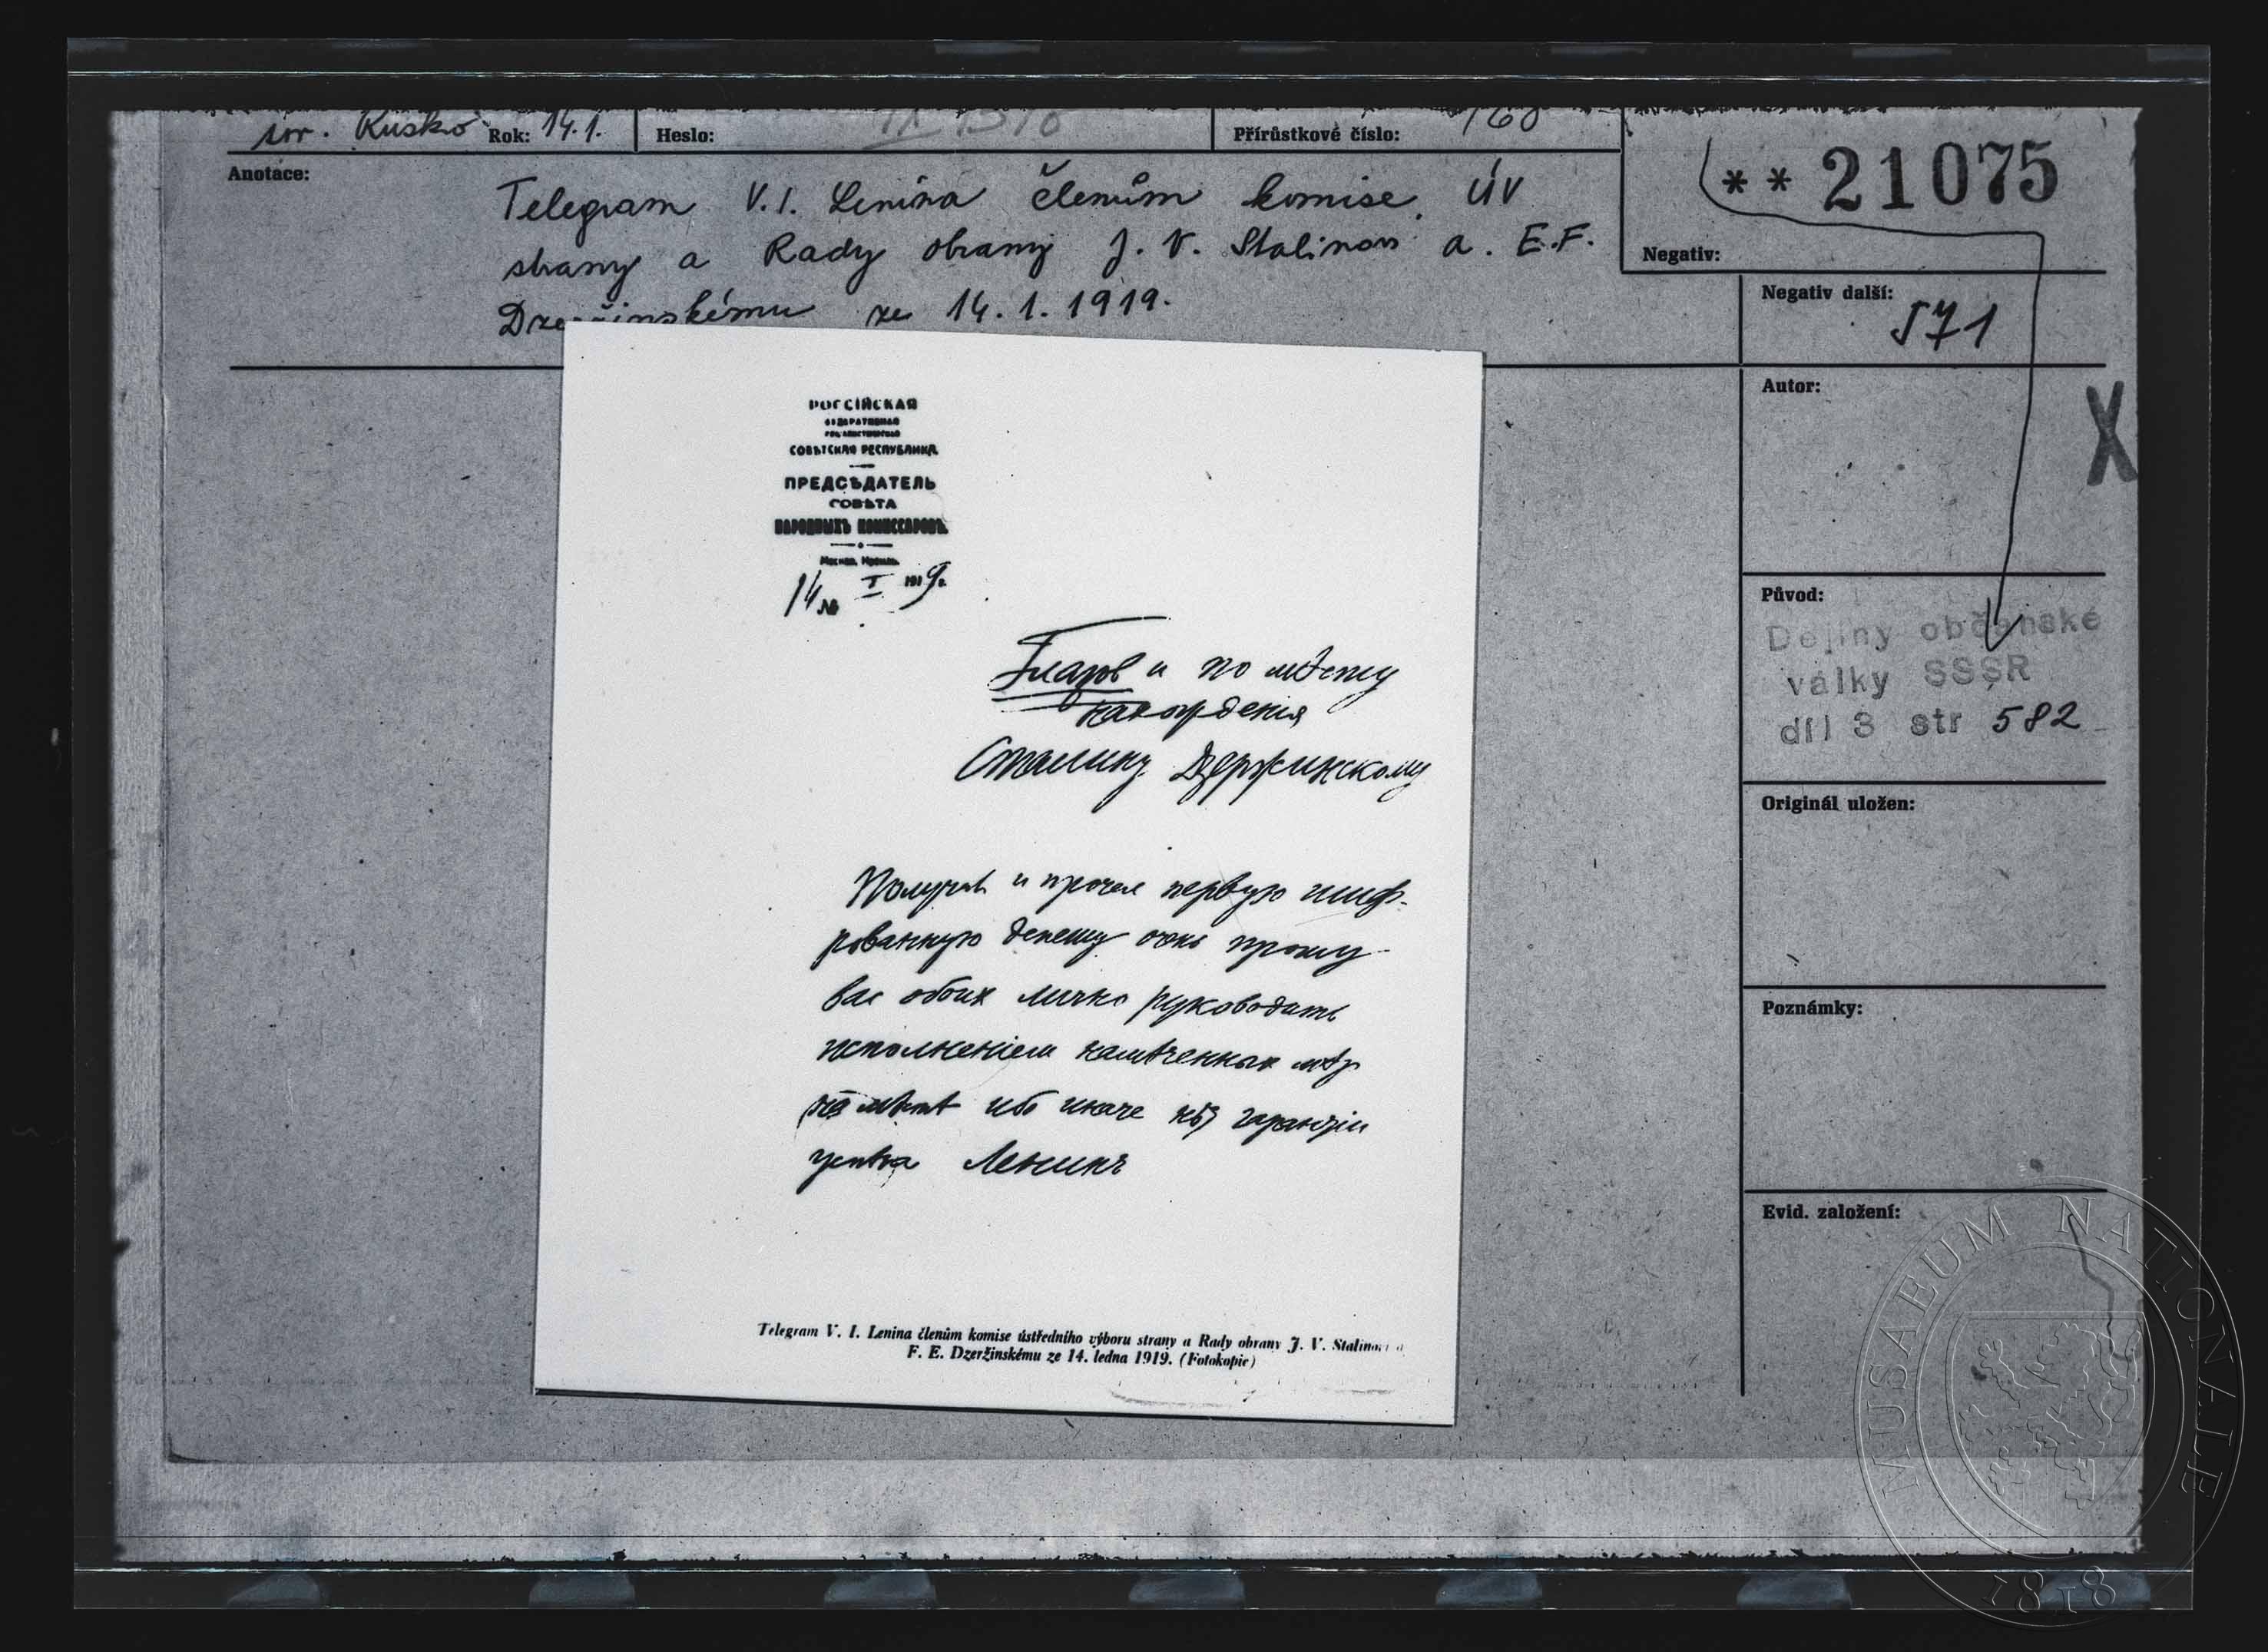 sov. Rusko Rok: 14.1. Heslo: Přírůstkové číslo: 160
** 21075
Anotace:
Telegram V. I. Lenina členům komise ÚV
strany a Rady obrany J. V. Stalinovi a E.F.
Dzeržinskému ze 14. 1. 1919.
Negativ:
Negativ další:
571
Autor:
X
Původ:
Dějiny občanské
války SSSR
díl 3 str 582
Originál uložen:
Poznámky:
Evid. založení:
РОССІЙСКАЯ
ФЕДЕРАТИВНАЯ
СОВѢТСКАЯ РЕСПУБЛИКА
ПРЕДСѢДАТЕЛЬ
СОВѢТА
НАРОДНЫХЪ КОМИССАРОВЪ.
Москва, Кремль.
14 I 1919 г.
№
Глазов и по мѣсту
нахожденія
Сталину Дзержинскому
Получил и прочел первую шиф-
рованную депешу очень прошу
вас обоих лично руководить
исполненіем намѣченных мѣр
на мѣстѣ ибо иначе нѣт гарантіи
успѣха Ленинъ
Telegram V. I. Lenina členům komise ústředního výboru strany a Rady obrany J. V. Stalinovi a
F. E. Dzeržinskému ze 14. ledna 1919. (Fotokopie)
MUSAEUM NATIONALE
1818